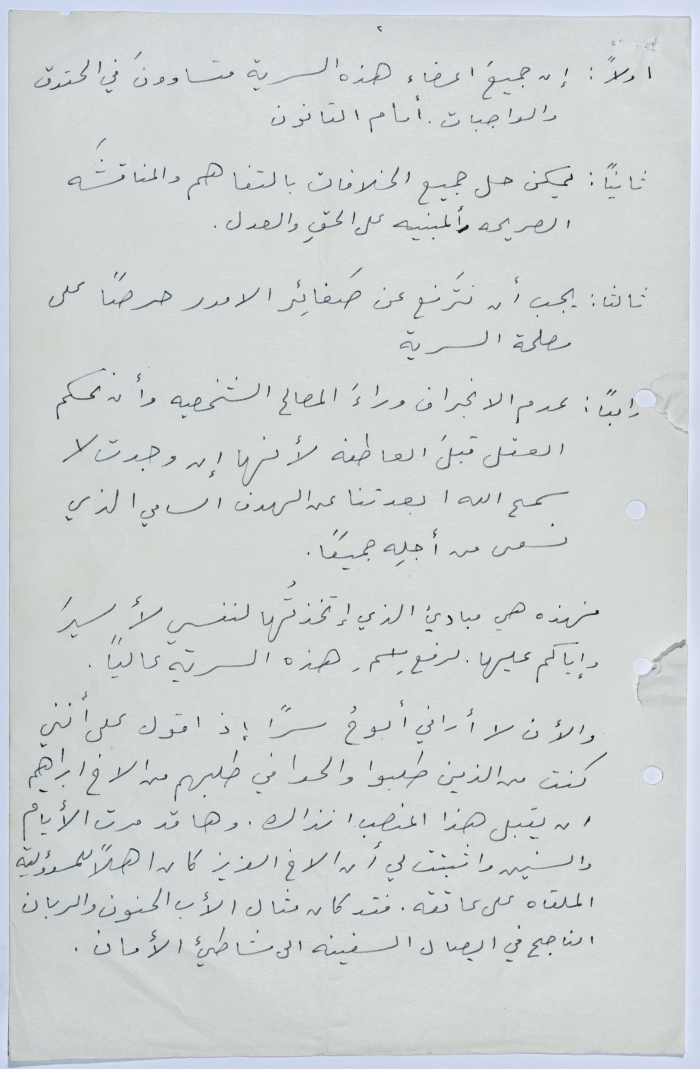 ٢
اولاً: إن جميعَ اعضاء هذه السرية متساوونَ في الحقوق
والواجبات. أمام القانون
ثانياً: يمكن حل جميع الخلافات بالتفاهم والمناقشَه
الصريحه والمبنيه على الحقِ والعدل.
ثالثا: يجب أن نترَفع عن صَغائِر الامور حرصاً على
مصلحة السرية
رابعاً: عدم الانجراف وراءَ المصالح الشخصيه وأن نحكم
العقل قبلَ العاطفه لأنها إن وجدت لا
سمح الله ابعدتنا عن الهدف السامي الذي
نسعى من أجلِه جميعًا.
فهذه هي مبادئ الذي إتخذتُها لنفسي لأسيرَ
وإياكم عليها. لرفع إسم هذه السرية عالياً.
والأن لا أراني أبوحُ سرًا إذ اقول على أنني
كنت من الذين طلبوا والحوا في طلبهم من الاخ ابراهيم
ان يقبل هذا المنصب انذاك. وها قد مرت الأيام
والسنين واثبتت لي أن الاخ العزيز كان اهلاً للمسؤولية
الملقاه على عاتقه. فقد كان مثال الأب الحنون والربان
الناجح في ايصال السفينه الى شاطئ الأمان.